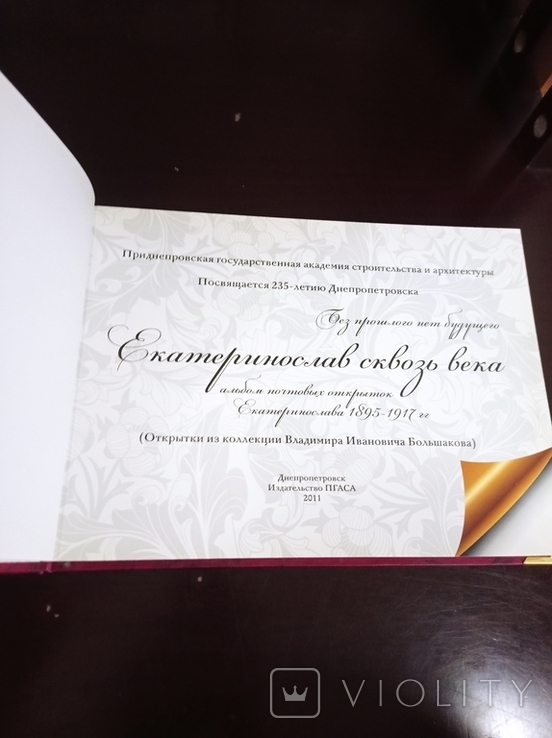 Приднепровская государственная академия строительства и архитектуры
Посвящается 235-летию Днепропетровска
Без прошлого нет будущего
Екатеринослав сквозь века
альбом почтовых открыток
Екатеринослава 1895-1917 гг
(Открытки из коллекции Владимира Ивановича Большакова)
Днепропетровск
Издательство ПГАСА
2011
VIOLITY